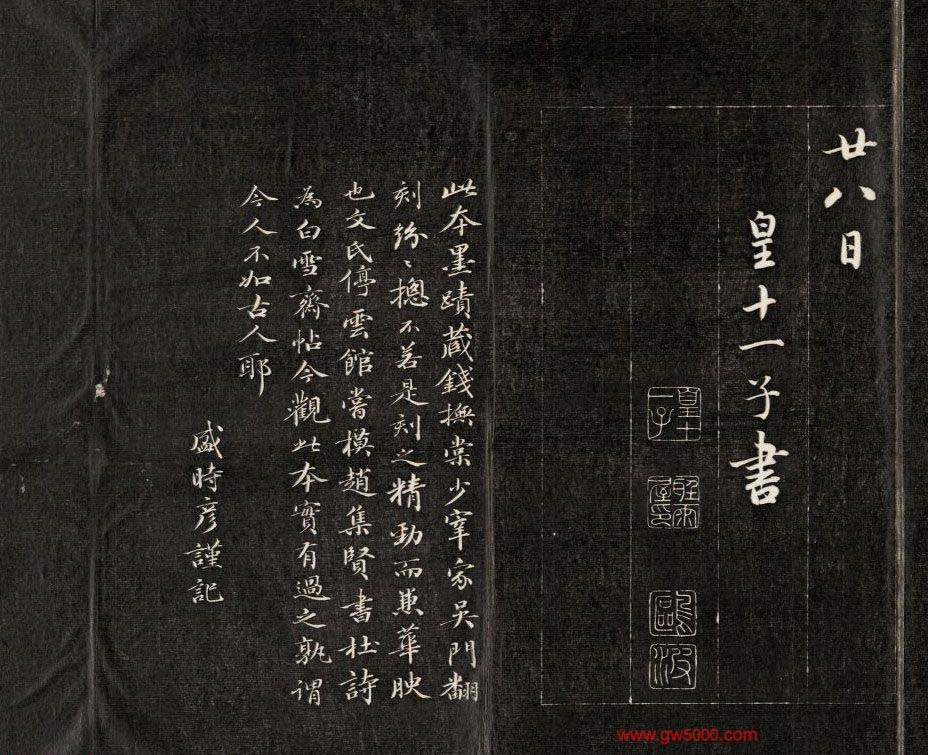 廿八日
皇十一子書
皇十一子
鷗波
此本墨蹟藏錢撫棠少宰家吴門翻
刻紛〻摠不若是刻之精勁而兼華映
也文氏停雲館嘗橅趙集賢書杜詩
為白雪齋帖今觀此本實有過之孰謂
今人不如古人耶
盛時彥謹記
www.gw5000.com